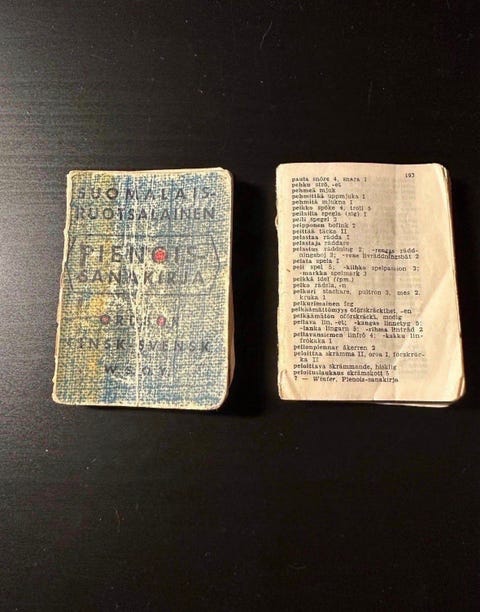 SUOMALAIS-
RUOTSALAINEN
PIENOIS-
SANAKIRJA
ORDBOK
SVENSK
WSOY
193
paula snöre 4, snara 1
pehku strö, -et
pehmeä mjuk
pehmittää uppmjuka 1
pehmitä mjukna 1
peikko spöke 4, troll 5
peilailla spegla (sig) 1
peili spegel 2
peipponen bofink 2
peittää täcka II
pelastaa rädda 1
pelastaja räddare
pelastus räddning 2; -rengas rädd-
ningsboj 2; -vene livräddningsbåt 2
pelata spela 1
peli spel 5; -kiihko spelpassion 3;
-markka spelmark 3
pelkkä idel (rpm.)
pelko rädsla, -n
pelkuri stackare, pultron 3, mes 2,
kruka 1
pelkurimainen feg
pelkäämättömyys oförskräckthet, -en
pelkäämätön oförskräckt, modig
pellava lin, -et; -kangas linnetyg 5;
-lanka lingarn 5; -rihma lintråd 2
pellavansiemen linfrö 4; -kakku lin-
frökaka 1
pellonpiennar åkerren 2
peloittaa skrämma II, oroa 1, förskräc-
ka II
peloittava skrämmande, hisklig
peloituslaukaus skrämskott 5
7 — Winter, Pienois-sanakirja